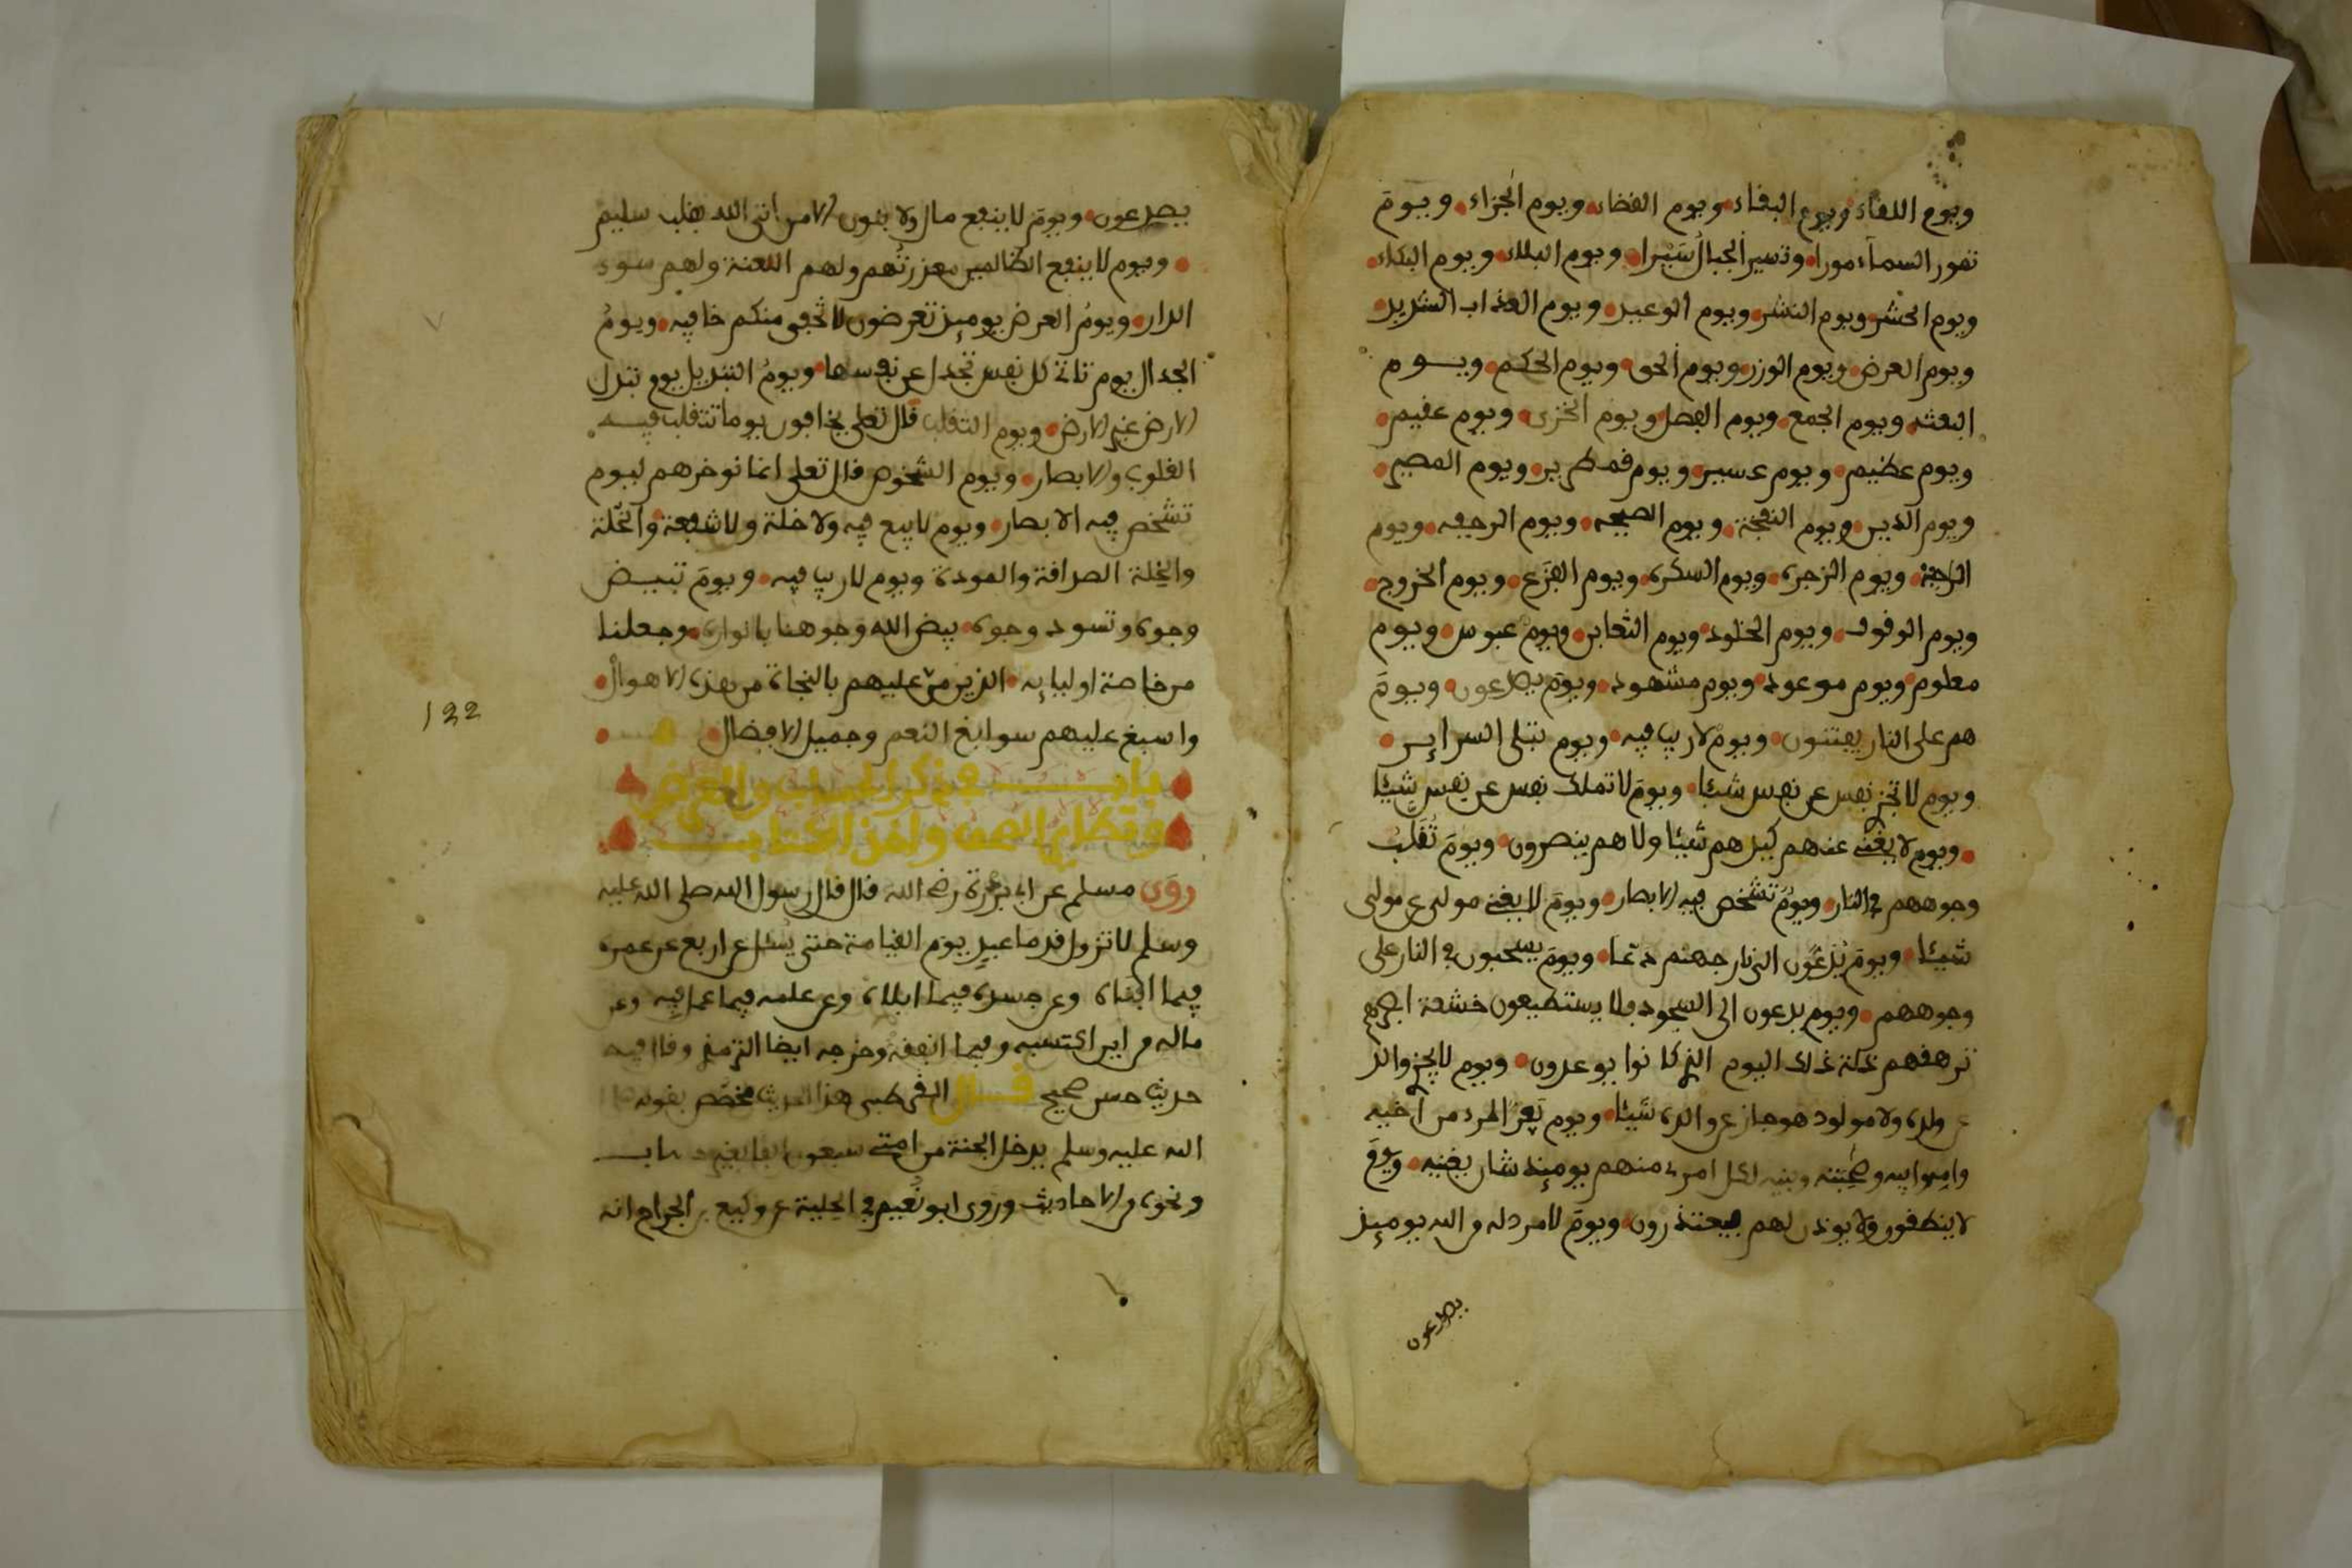 ويوم اللقاء ويوم البقاء ويوم القضاء ويوم الجزاء ويوم
تمور السماء مورا وتسير الجبال سيرا ويوم البلاء ويوم البكاء
ويوم الحشر ويوم النشر ويوم الوعيد ويوم العذاب الشديد
ويوم العرض ويوم الوزن ويوم الحق ويوم الحكم ويوم
البعث ويوم الجمع ويوم الفصل ويوم الخزى ويوم عقيم
ويوم عظيم ويوم عسير ويوم قمطرير ويوم المصير
ويوم الدين ويوم النفخة ويوم الصيحه ويوم الرجفه ويوم
الرجة ويوم الزجرة ويوم السكرة ويوم الفزع ويوم الخروج
ويوم الوقوف ويوم الخلود ويوم التغابن ويوم عبوس ويوم
معلوم ويوم موعود ويوم مشهود ويوم يصدعون ويوم
هم على النار يفتنون ويوم لا ريب فيه ويوم تبلى السراير
ويوم لا تجز نفس عن نفس شيئا ويوم لا تملك نفس عن نفس شيئا
ويوم لا يغنے عنهم كيدهم شيئا ولا هم ينصرون ويوم تقلب
وجوههم في النار ويوم تشخص فيه الابصار ويوم لا يغنے مولى عن مولى
شيئا ويوم يدعون الى نار جهنم دعا ويوم يسحبون في النار على
وجوههم ويوم يدعون الى السجود فلا يستطيعون خشعة ابصرهم
ترهقهم ذلة ذلك اليوم الذے كانوا يوعدون ويوم لا يجزے والد
عن ولده ولا مولود هو جاز عن والده شيئا ويوم يفر المرء من أخيه
وامه وابيه وصحبته وبنيه لكل امرء منهم يوميذ شان يغنيه ويوم
لا ينطقون ولا يوذن لهم فيعتذرون ويوم لا مرد له من الله يوميذ
يصدعون
يصدعون ويوم لا ينفع مال ولا بنون الا من اتى الله بقلب سليم
ويوم لا ينفع الظالمين معذرتهم ولهم اللعنة ولهم سوء
الدار ويوم العرض يوميذ تعرضون لا تخفى منكم خافيه ويوم
الجدال يوم تاتے كل نفس تجدل عن نفسها ويوم التبديل يوم تبدل
الارض غير الارض ويوم التقلب قال تعلى يخافون يوما تتقلب فيه
القلوب والابصار ويوم الشخوص قال تعلى انما نوخرهم ليوم
تشخص فيه الابصار ويوم لا بيع فيه ولا خلة ولا شفعة والخلة
والخلة الصدافة والمودة ويوم لا ريب فيه ويوم تبيض
وجوه وتسود وجوه بيض الله وجوهنا بانواره وجعلنا
من خاصة اوليايه الذين من عليهم بالنجاة من هذه الاهوال
واسبغ عليهم سوابغ النعم وجميل الافضال
122
باب في ذكر الحساب والعرض
وتطاير الصحف واخذ الكتاب
روى مسلم عن ابي برزة رضي الله قال قال رسول الله صلى الله عليه
وسلم لا تزول قدما عبد يوم القيامة حتى يسئل عن اربع عن عمره
فيما افناه وعن جسده فيما ابلاه وعن علمه فيما عمل فيه وعن
ماله من اين اكتسبه وفيما انفقه وخرجه ايضا الترمذي وقال فيه
حديث حسن صحيح قال القرطبى هذا الحديث مخصص بقوله
الله عليه وسلم يدخل الجنة من امتے سبعون الفا بغير حساب
ونحوه من الاحاديث وروى ابو نعيم في الحلية عن وكيع بن الجراح انه